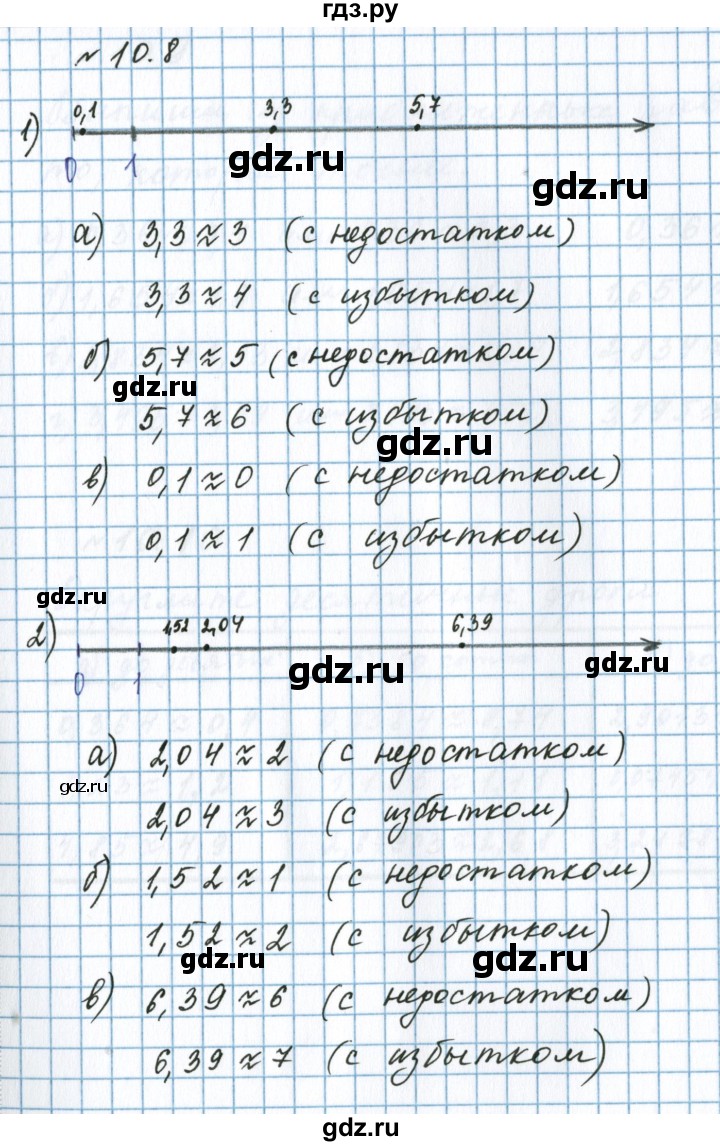 гдз.ру
№ 10.8
0,1 3,3 5,7
1)
0 1
gdz.ru
gdz.ru
а) 3,3 ≈ 3 (с недостатком)
3,3 ≈ 4 (с избытком)
б) 5,7 ≈ 5 (с недостатком)
gdz.ru
5,7 ≈ 6 (с избытком)
gdz.ru
в) 0,1 ≈ 0 (с недостатком)
0,1 ≈ 1 (с избытком)
gdz.ru
2) 1,52 2,04 6,39
0 1
gdz.ru
gdz.ru
а) 2,04 ≈ 2 (с недостатком)
gdz.ru
2,04 ≈ 3 (с избытком)
б) 1,52 ≈ 1 (с недостатком)
1,52 ≈ 2 (с избытком)
gdz.ru
gdz.ru
в) 6,39 ≈ 6 (с недостатком)
6,39 ≈ 7 (с избытком)
gdz.ru